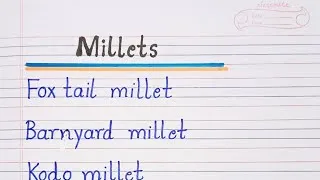 Millets
Fox tail millet
Barnyard millet
Kodo millet